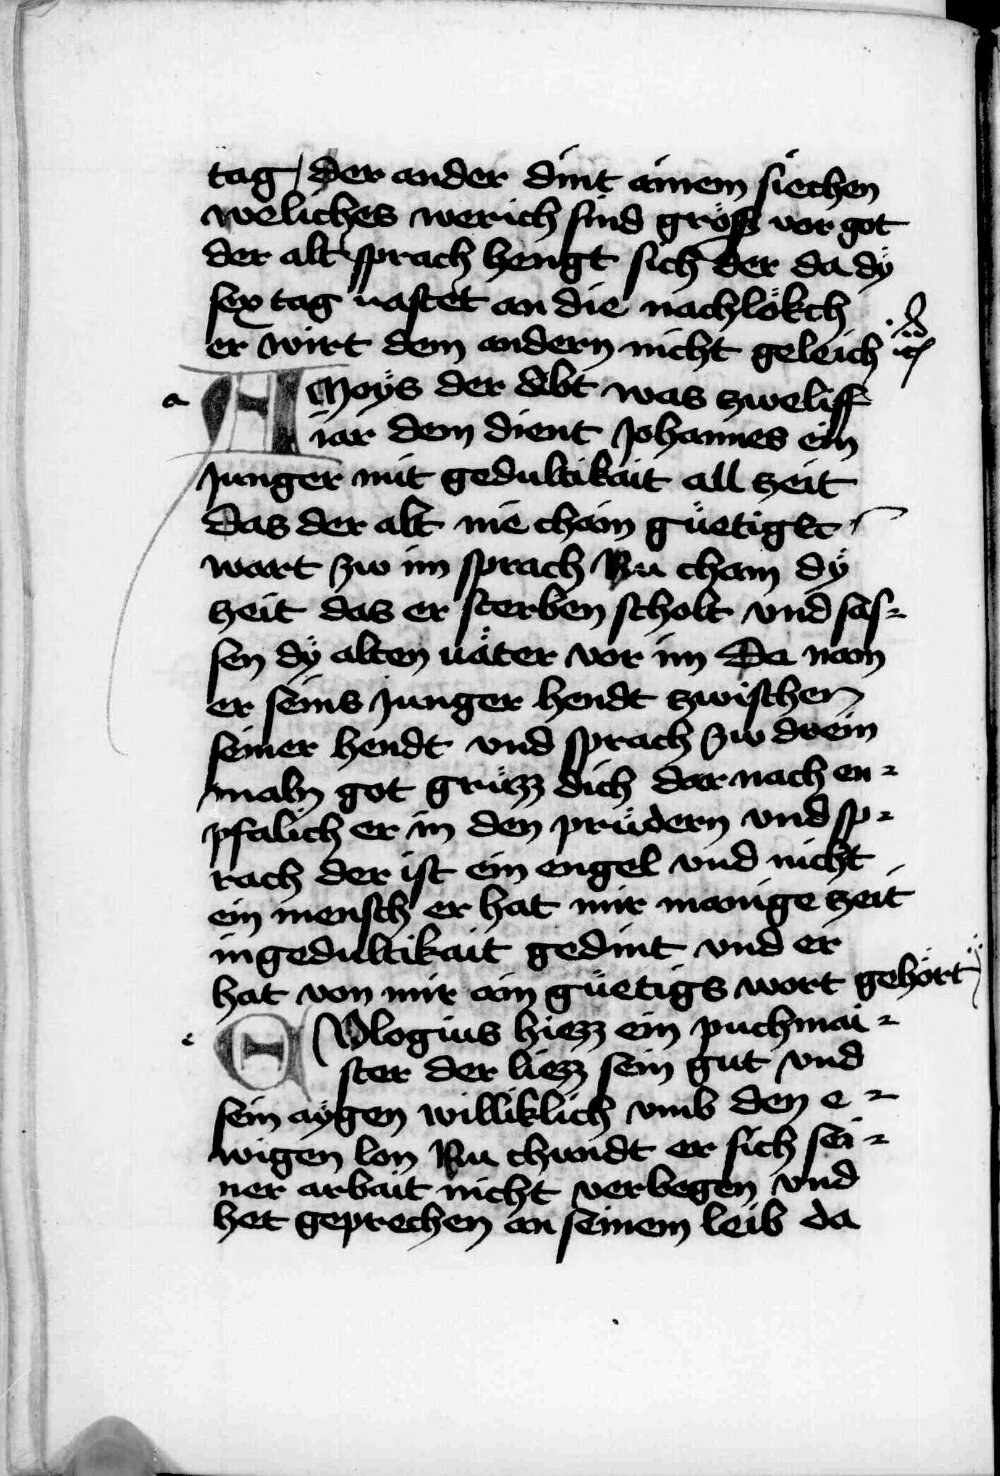 tag / der ander dint ainem siechen
weliches werich sind gröss vor got
der alt sprach hengt sich der da dÿ
sex tag uastet an die nachlökch
er wirt dem andern nicht geleich
a
AMoÿs der abt was zweliff
iar dem dient Johannes ein
Junger mit gedultikait all zeit
Das der alt nie chain güetigkc
wart zw im sprach Nu cham dÿ
zeit das er sterben scholt vnd sas=
sen dÿ alten uäter vor im Da nam
er seins Junger hendt zwischen
seiner hendt vnd sprach zw drein
maln got grüzz dich dar nach en=
pfalich er in den prüdern vnd sp=
rach der ist ein engel vnd nicht
ein mensch er hat mir manige zeit
in gedultikait gedint vnd er
hat von mir ain güetigs wort gehört
e
EVlogius hiezz ein puchmai=
ster der liezz sein gut vnd
sein aÿgen williklich vmb den e=
wigen lon Nu chundt er sich sei=
ner arbait nicht verbegen vnd
het geprechen an seinem leib da